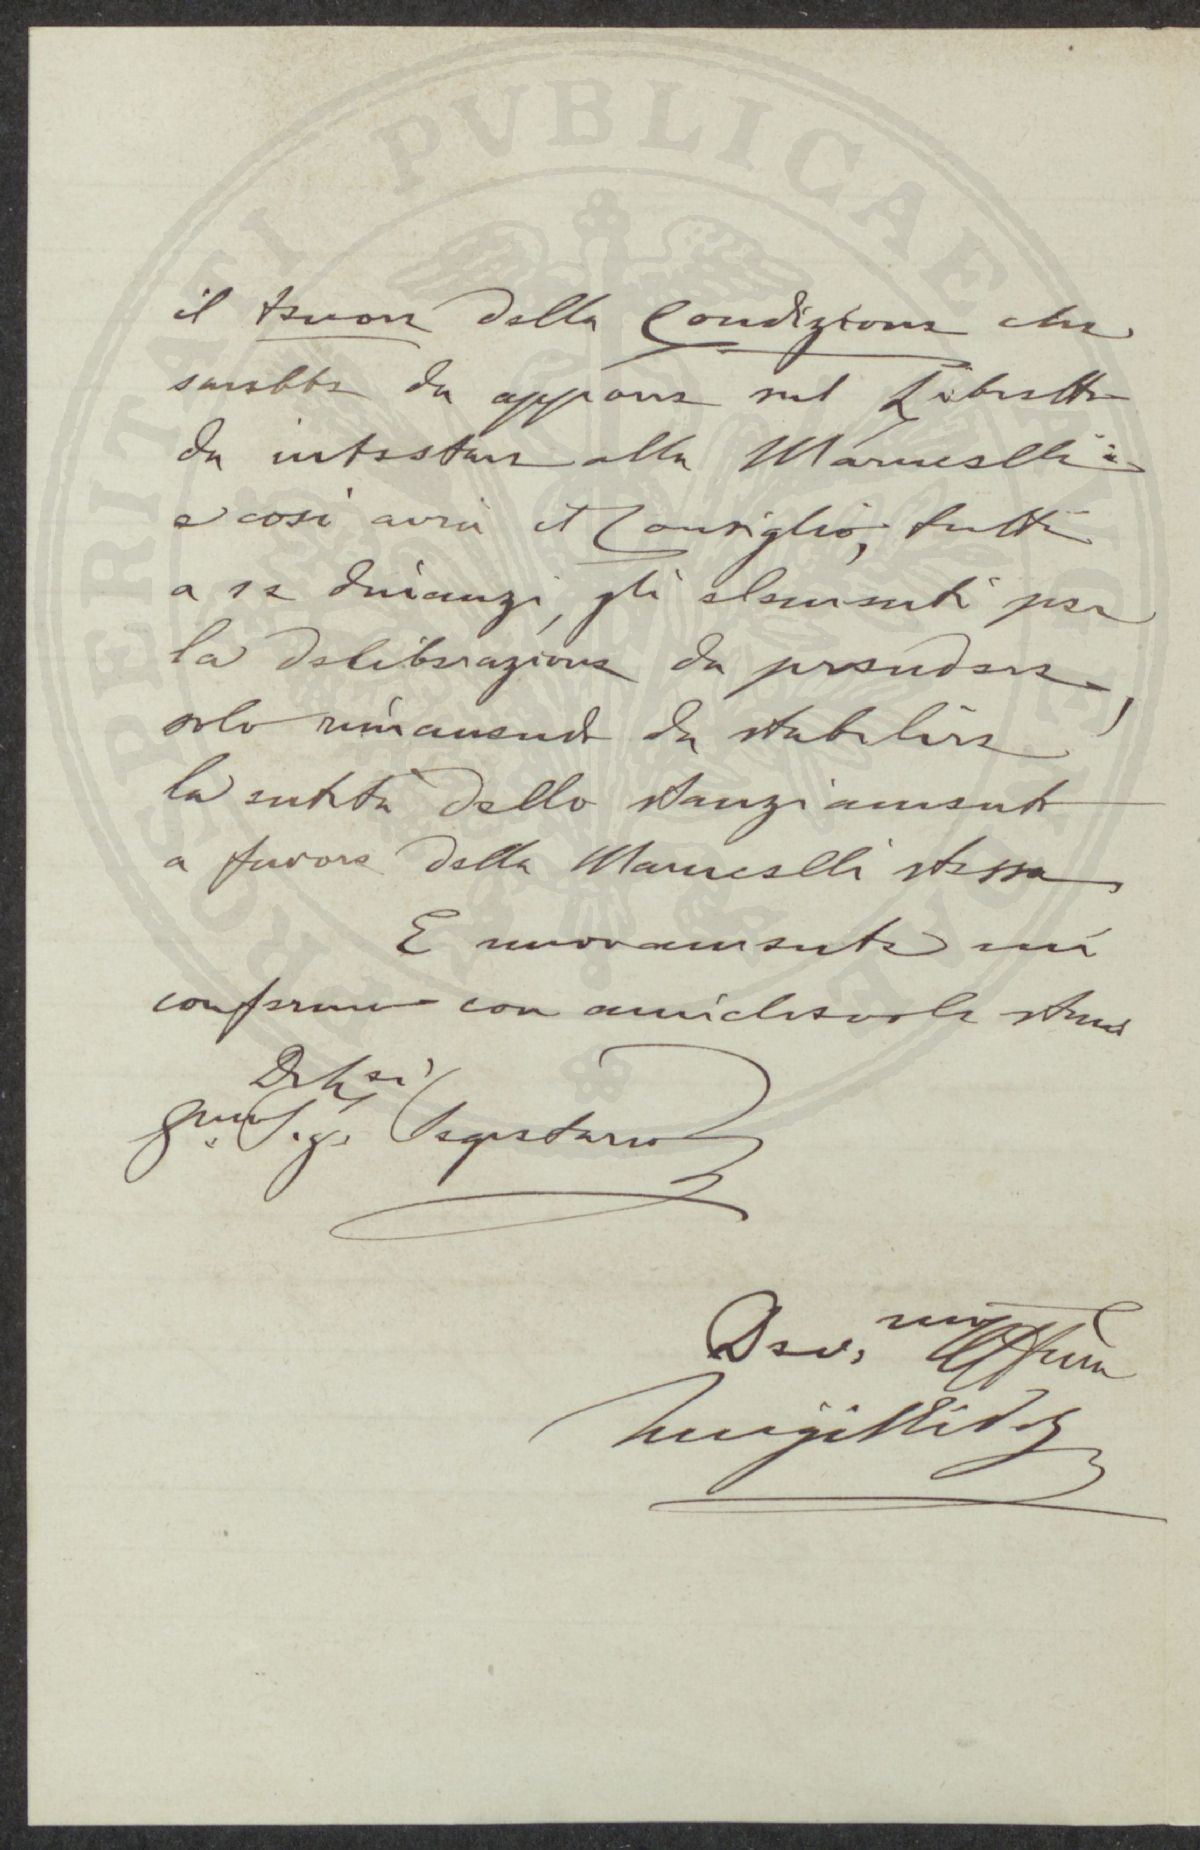 PROSPERITATI PVBLICAE AVGENDAE
il tenore della Condizione che
sarebbe da apporre sul Libretto
da intestare alla Marucelli:
e così avrà il Consiglio, tutti
a se dinanzi, gli elementi per
la deliberazione da prendere,
solo rimanendo da stabilire
la entità dello stanziamento
a favore della Marucelli stessa
E nuovamente mi
confermo con amichevole stima
Di Lei
Sig. Segretario
Dev.mo
Luigi